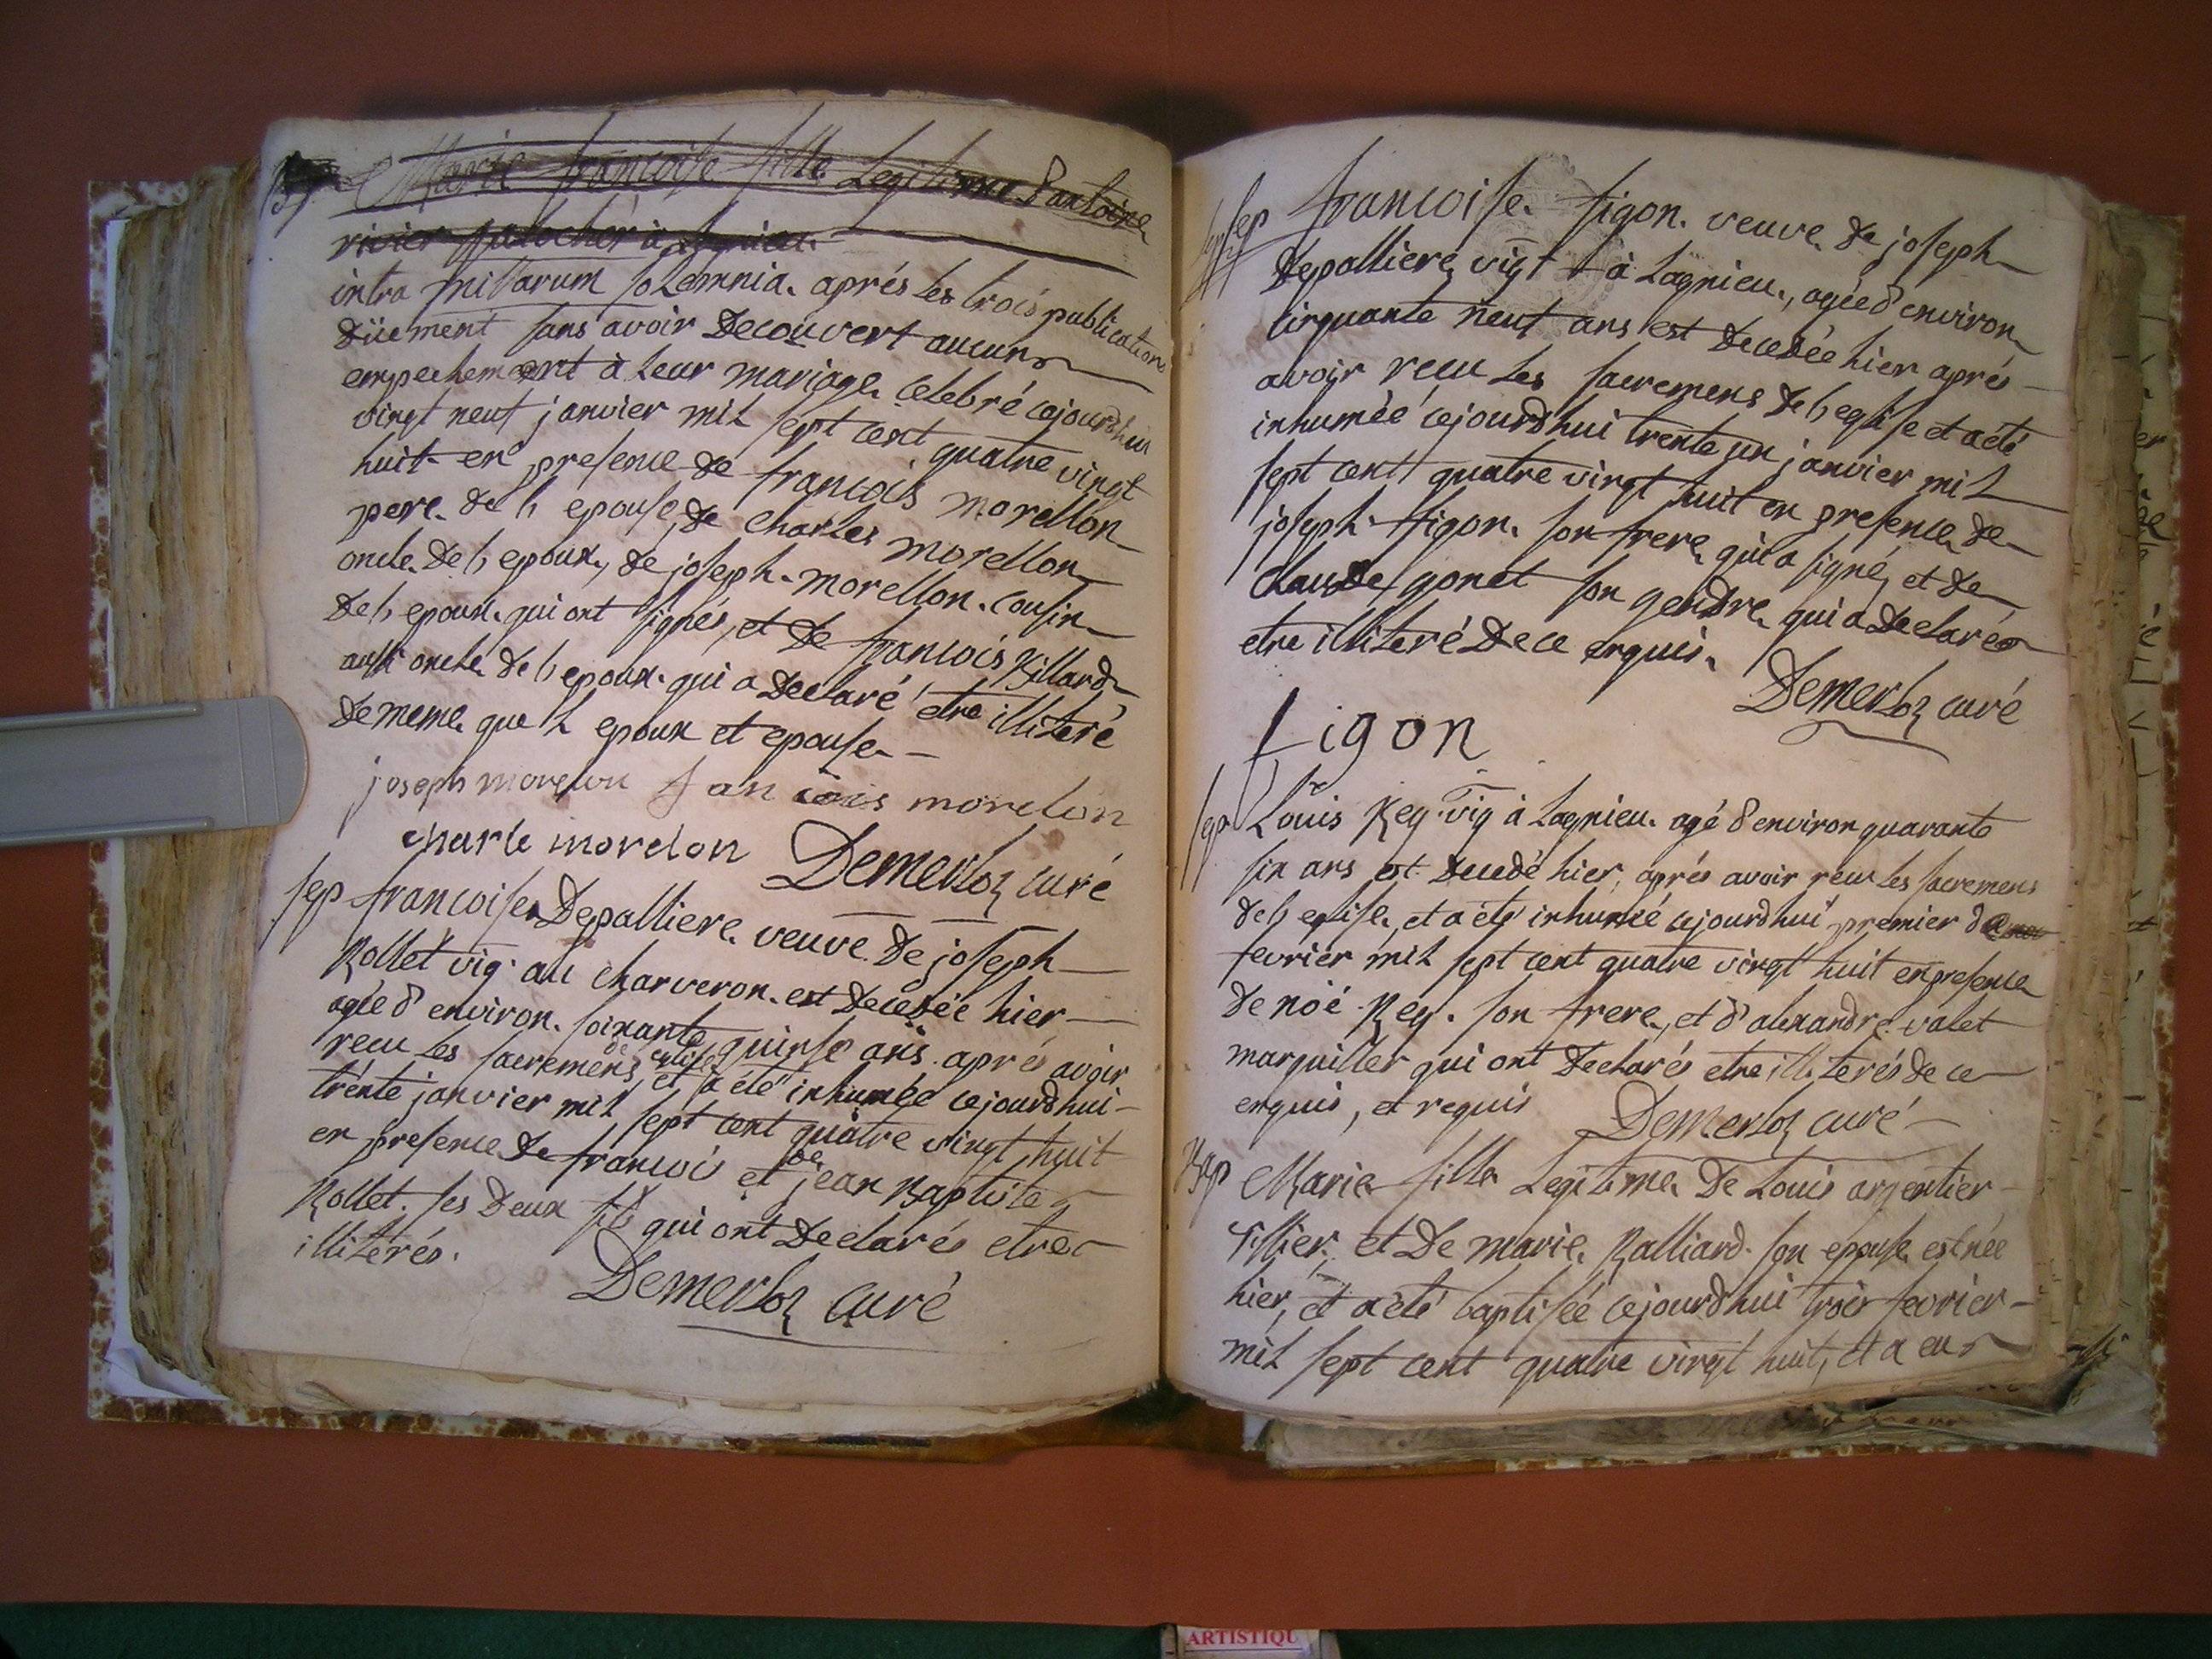 Marie francoise fille Legitime d'antoine
rivier à Lagnieu
intra missarum solemnia. aprés les trois publications
düement sans avoir decouvert aucun
empechement à leur mariage. celebré cejourdhui
vingt neuf janvier mil sept cent quatre vingt
huit en presence de francois morellon
pere de l epouse, de charles morellon
oncle de l epoux, de joseph morellon cousin
de l epoux qui ont signés, et de francois Billard
aussi oncle de l epoux qui a declaré etre illiteré
de meme que l epoux et epouse
joseph morelon fancois morelon
charle morelon Demerloz curé
sep francoise Depalliere veuve de joseph
Rollet vig. au charveron est decedée hier
agée d'environ soixante quinse ans aprés avoir
recu les sacremens de eglise et a été inhumée cejourdhui
trente janvier mil sept cent quatre vingt huit
en presence de francois et de jean Baptiste
Rollet ses deux fils qui ont declarés etre
illiterés.
Demerloz curé
sep francoise figon veuve de joseph
Depalliere, vig à Lagnieu, agée d'environ
cinquante neuf ans est decedée hier aprés
avoir recu les sacremens de l eglise et a été
inhumée cejourd'hui trente un janvier mil
sept cent quatre vingt huit en presence de
joseph figon son frere, qui a signé, et de
claude gonet son gendre qui a declaré
etre illiteré de ce enquis.
Demerloz curé
figon
sep Louis Rey vig à Lagnieu agé d environ quarante
six ans est decedé hier, aprés avoir recu les sacremens
de l eglise, et a été inhumé cejourdhui premier de
fevrier mil sept cent quatre vingt huit en presence
de nöé Rey son frere, et d'alexandre valet
marguiller qui ont declarés etre illiterés de ce
enquis, et requis Demerloz curé
Bap Marie fille Legitime de Louis argentier
tissier, et de marie Ralliard son epouse est née
hier, et a été baptisée cejourdhui trois fevrier
mil sept cent quatre vingt huit, et a eu
ARTISTIQU